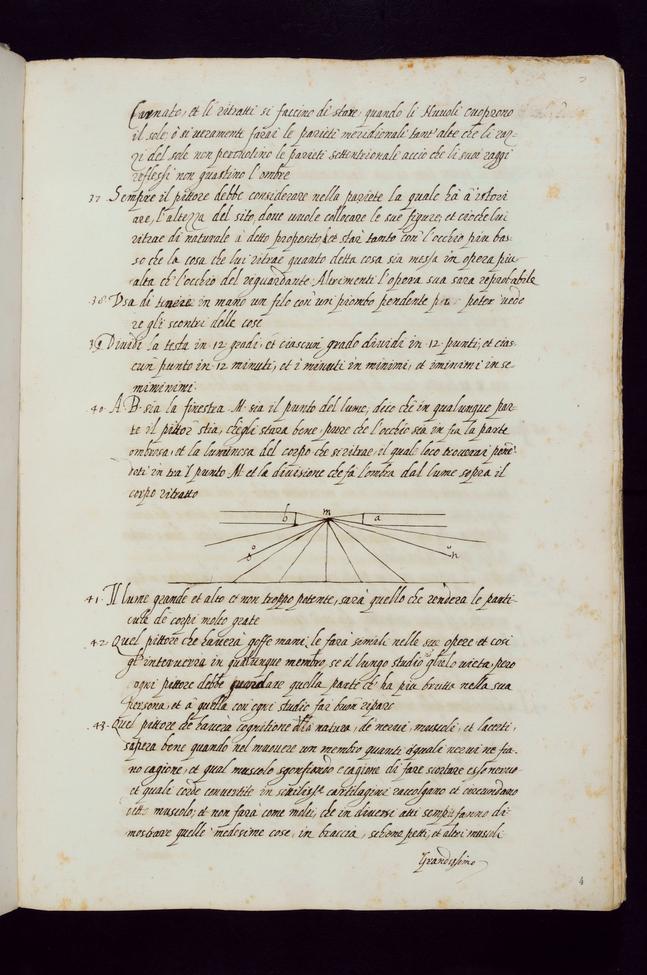 Carnato, et li ritratti si faccino di state, quando li Nuvoli cuoprono
il sole, ò si veramente farai le parieti meridionali tant'alte che li rag-
gi del sole non percotino le parieti settentrionali accio che li suoi raggi
reflessi non guastino l'ombre
37 Sempre il pittore debbe considerare nella pariete la quale hà à istori
are, l'altezza del sito, dove vuole collocare le sue figure, et ciòche lui
ritrae di naturale à detto proposito, et star tanto con l'occhio piu bas-
so che la cosa che lui ritrae quanto detta cosa sia messa in opera piu
alta ch l'occhio del riguardante. Altrimenti l'opera sua sara reprobabile
38 Usa di tenere in mano un filo con un piombo pendente per poter vede
re gli scontri delle cose
39 Dividi la testa in 12 gradi, et ciascun grado dividi in 12 punti, et cias-
cun punto in 12 minuti, et i minuti in minimi, et i minimi in se-
miminimi
40 A. B. sia la finestra M. sia il punto del lume, dico ch' in qualunque par-
te il pittor stia, chegli stara bene, pure che l'occhio sia in fra la parte
ombrosa, et la luminosa del corpo che si ritrae, il quale loco troverai ponē-
doti in tra 'l punto M. et la divisione che fà l'ombra dal lume sopra il
corpo ritratto
b m a
o n
41 Il lume grande et alto et non troppo potente, sarà quello che rēdera le parti-
cule de corpi molto grate
42 Quel pittore che haverà goffe mani, le farà simili nelle sue opere et cosi
gl' interverra in qualunque membro, se il lungo studio non glielo vieta, però
ogni pittore debbe guardare quella parte ch' ha piu brutta nella sua
persona, et à quella con ogni studio far buon riparo
43 Quel pittore che haverà cognitione della natura, de nervi, muscoli, et lacerti,
sapera bene quando nel muovere un membro quanti et quali nervi ne sia-
no cagione, et qual muscolo sgonfiando è cagione di fare scortare esso nervo
et quale corde convertite in sottilissime cartilagini raccolgano et circundano
detto muscolo, et non farà come molti, che in diversi atti sempre fanno di
mostrare quelle medesime cose, in braccia, schene petti, et altri muscoli
Grandissimo
4